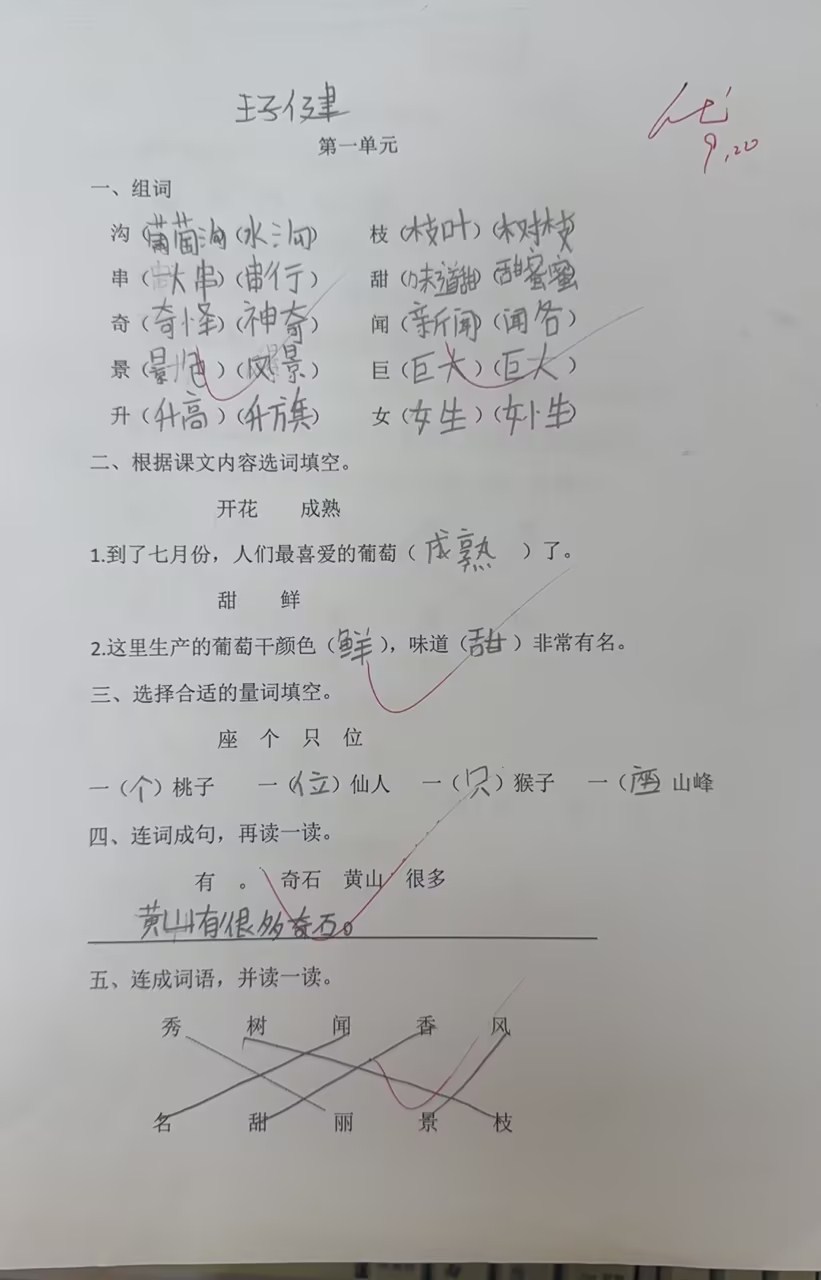 王子健
优
9.20
第一单元
一、组词
沟（葡萄沟）（水沟） 枝（枝叶）（树枝）
串（大串）（串行） 甜（味道甜）（甜蜜蜜）
奇（奇怪）（神奇） 闻（新闻）（闻名）
景（景色）（风景） 巨（巨大）（巨人）
升（升高）（升旗） 女（女生）（女生）
二、根据课文内容选词填空。
开花 成熟
1.到了七月份，人们最喜爱的葡萄（成熟）了。
甜 鲜
2.这里生产的葡萄干颜色（鲜），味道（甜）非常有名。
三、选择合适的量词填空。
座 个 只 位
一（个）桃子 一（位）仙人 一（只）猴子 一（座 山峰
四、连词成句，再读一读。
有 。 奇石 黄山 很多
黄山有很多奇石。
五、连成词语，并读一读。
秀 树 闻 香 风
名 甜 丽 景 枝